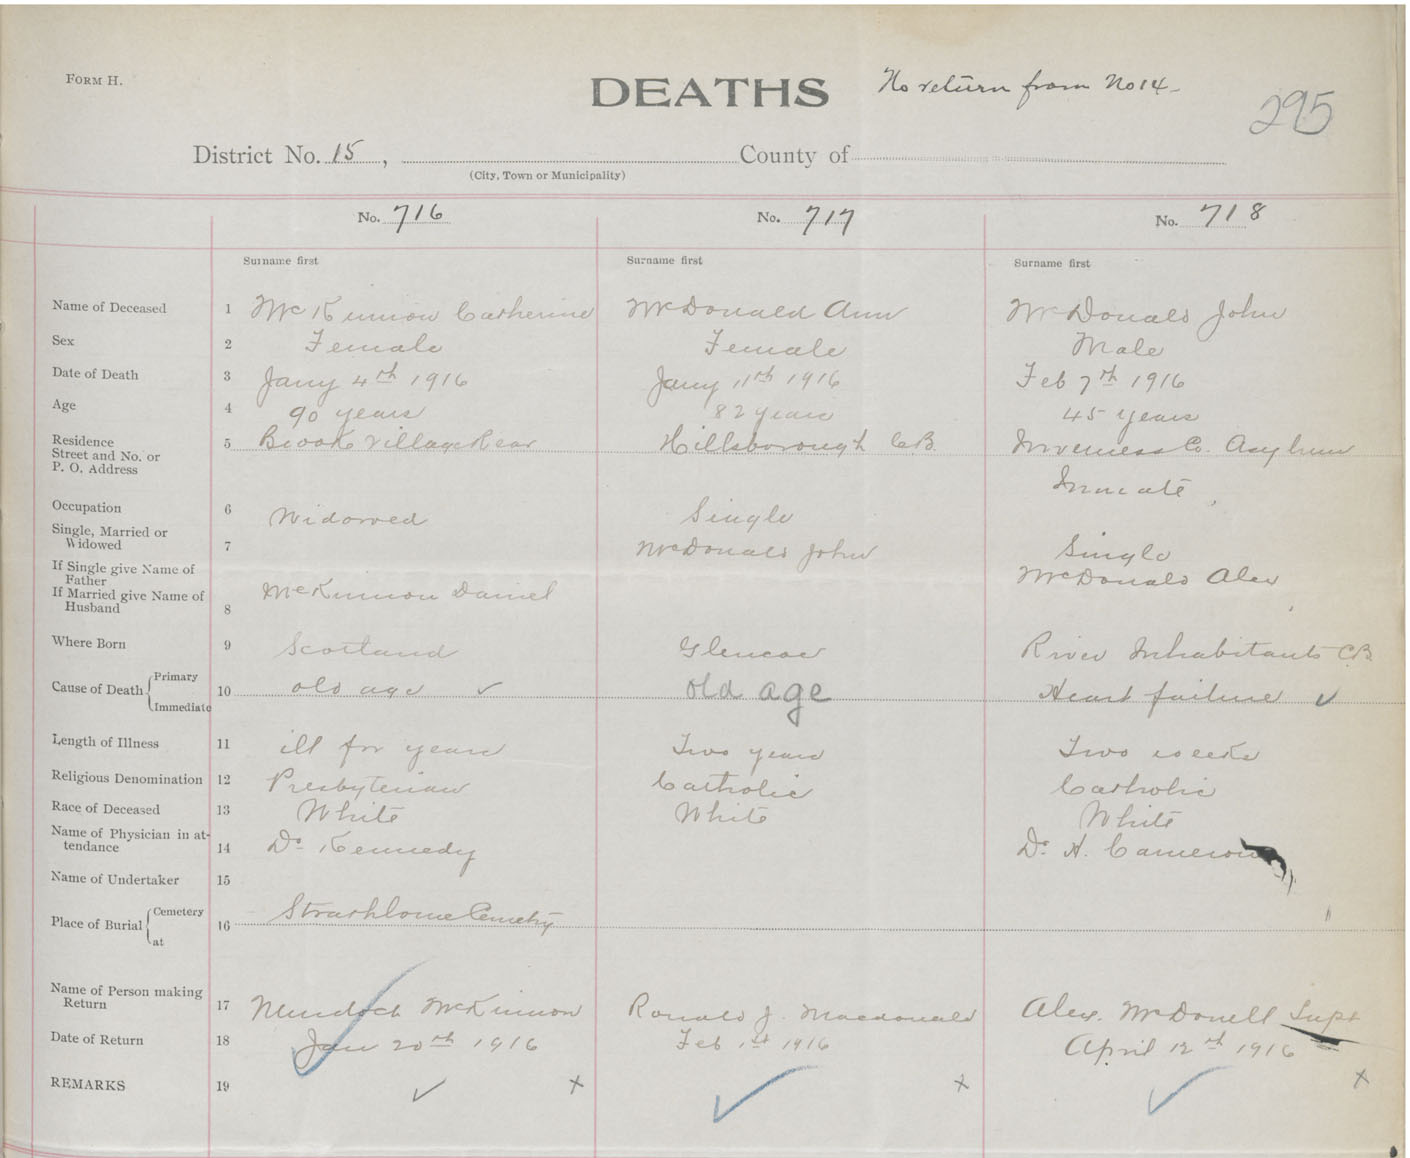 FORM H.
DEATHS
No return from No 14 -
295
District No. 15, County of
(City, Town or Municipality)
No. 716 No. 717 No. 718
Surname first Surname first Surname first
Name of Deceased 1 McKinnon Catherine McDonald Ann McDonald John
Sex 2 Female Female Male
Date of Death 3 Jany 4th 1916 Jany 11th 1916 Feb 7th 1916
Age 4 90 years 82 years 45 years
Residence 5 Brook Village Rear Hillsborough C.B. Inverness Co. Asylum
Street and No. or
P. O. Address
Inmate
Occupation 6
Widowed Single
Single, Married or
Widowed 7 McDonald John Single
If Single give Name of
Father McDonald Alex
If Married give Name of
Husband 8 McKinnon Daniel
Where Born 9 Scotland Glencoe River Inhabitants C.B.
Cause of Death Primary
10 old age ✓ old age Heart failure ✓
Immediate
Length of Illness 11 ill for years Two years Two weeks
Religious Denomination 12 Presbyterian Catholic Catholic
Race of Deceased 13 White White White
Name of Physician in at-
tendance 14 Dr Kennedy Dr. A. Cameron
Name of Undertaker 15
Place of Burial Cemetery
16 Strathlorne Cemetry
at
Name of Person making
Return 17 Murdoch McKinnon Ronald J. Macdonald Alex. McDonell Supt
Date of Return 18 Jan 20th 1916 Feb 1st 1916 April 12th 1916
REMARKS 19 ✓ x ✓ x ✓ x